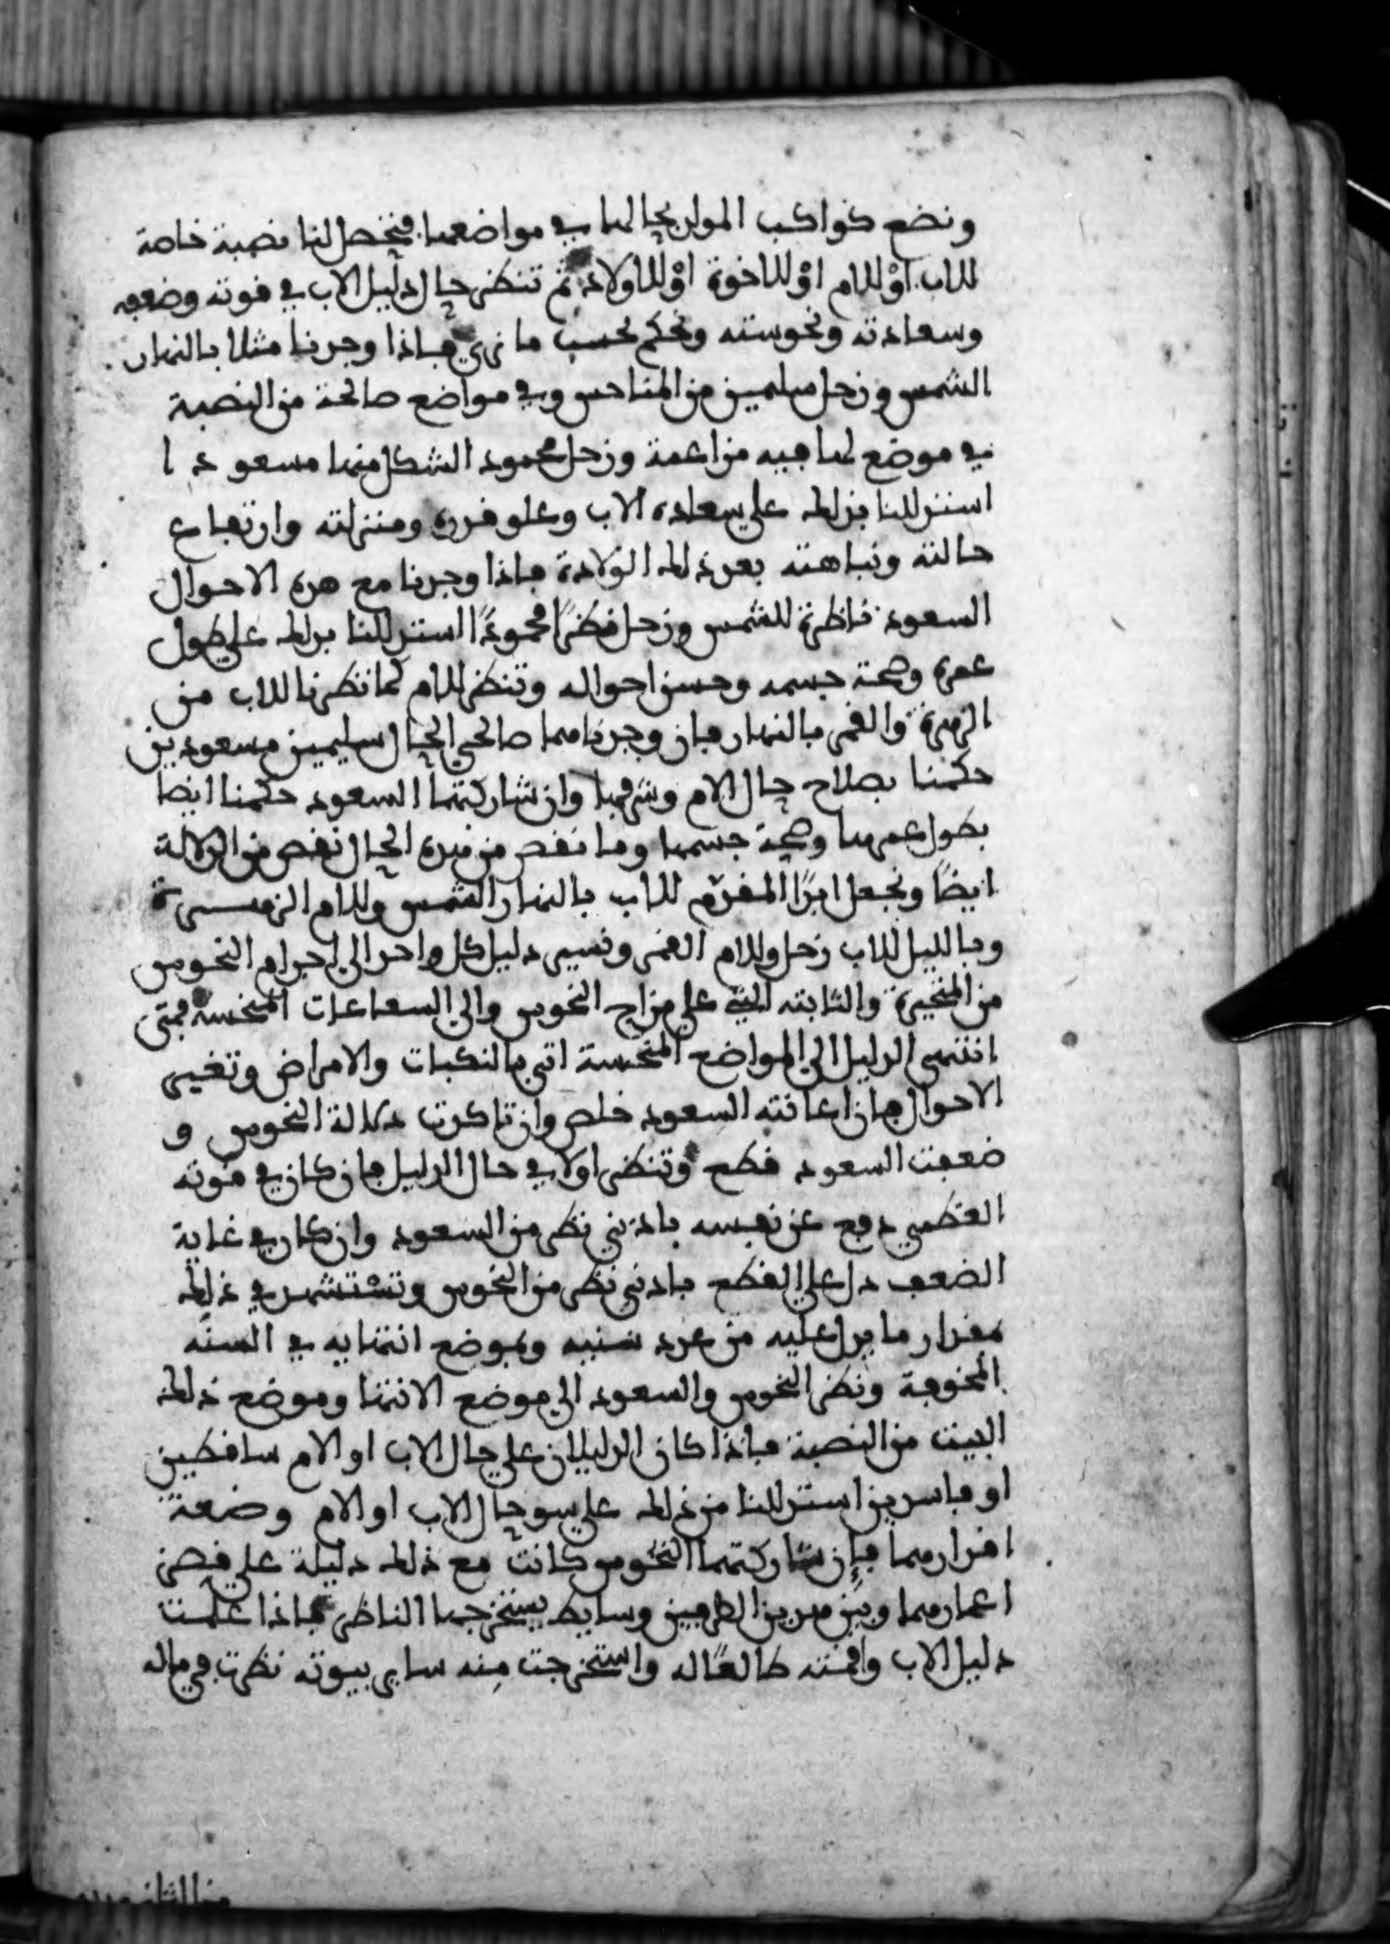 ونضع كواكب المولد بحالها في مواضعها فتحصل لنا نصبة خاصة
للاب اوْ للام اوْ للاخوة اوْ للاولاد ثم تنظر حال دليل الاب في قوته وضعفه
وسعادته ونحوسته ونحكم بحسب ما نرى فاذا وجدنا مثلا بالنهار
الشمس وزحل سليمين من المناحس وفي مواضع صالحة من النصبة
في موضع لهما فيه مزاعمة وزحل محمود الشكل منها مسعودا
استدللنا بذلك على سعادة الاب وعلو قدره ومنزلته وارتفاع
حالته ونباهته بعد ذلك الولادة فاذا وجدنا مع هذه الاحوال
السعود ناظرة للشمس وزحل نظرًا محمودًا استدللنا بذلك على طول
عمره وصحة جسمه وحسن احواله وتنظر للام كما نظرنا للاب من
الزهرة والقمر بالنهار فان وجدناهما صالحي الحال سليمين مسعودين
حكمنا بصلاح حال الام وشرفها وان شاركتهما السعود حكمنا ايضا
بطول عمرها وصحة جسمها وما نقص من هذه الحال نقص من الدلالة
ايضًا ونجعل ابدًا المقدّم للاب بالنهار الشمس وللام الزهرة
وبالليل للاب زحل وللام القمر ونسير دليل كل واحد الى اجرام النحوس
من المتحيرة والثابتة التي على مزاج النحوس والى الشعاعات المنحسة فمتى
انتهى الدليل الى المواضع المنحسة اتى بالنكبات والامراض وتغيير
الاحوال فان اعانته السعود خلص وان تاكدت دلالة النحوس و
ضعفت السعود قطع وتنظر اولا في حال الدليل فان كان في قوته
العظمى دفع عن نفسه بادنى نظر من السعود وان كان في غاية
الضعف دل على القطع بادنى نظر من النحوس وتستشهد في ذلك
بمقدار ما يدل عليه من عدد سنيه وبموضع انتهايه في السنة
المخوفة ونظر النحوس والسعود الى موضع الانتها وموضع ذلك
البيت من النصبة فاذا كان الدليلان على حال الاب او الام ساقطين
او فاسدين استدللنا من ذلك على سو حال الاب او الام وضعة
اقدارهما فإن شاركتهما النحوس كانت مع ذلك دليلة على قصر
اعمارهما وبين هذين الطرفين وسايط يستخرجها الناظر فاذا علمت
دليل الاب واقمته طالعًا له واستخرجت منه ساير بيوته نظرت في ماله